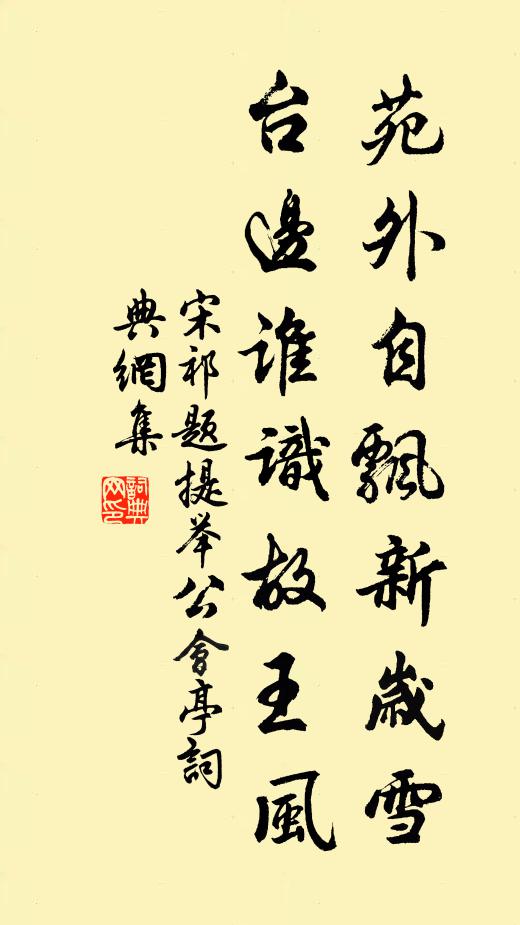 苑外自飄新歲雪
台邊誰識故王風
宋祁題提举公會亭詞
典網集
詞典
网印